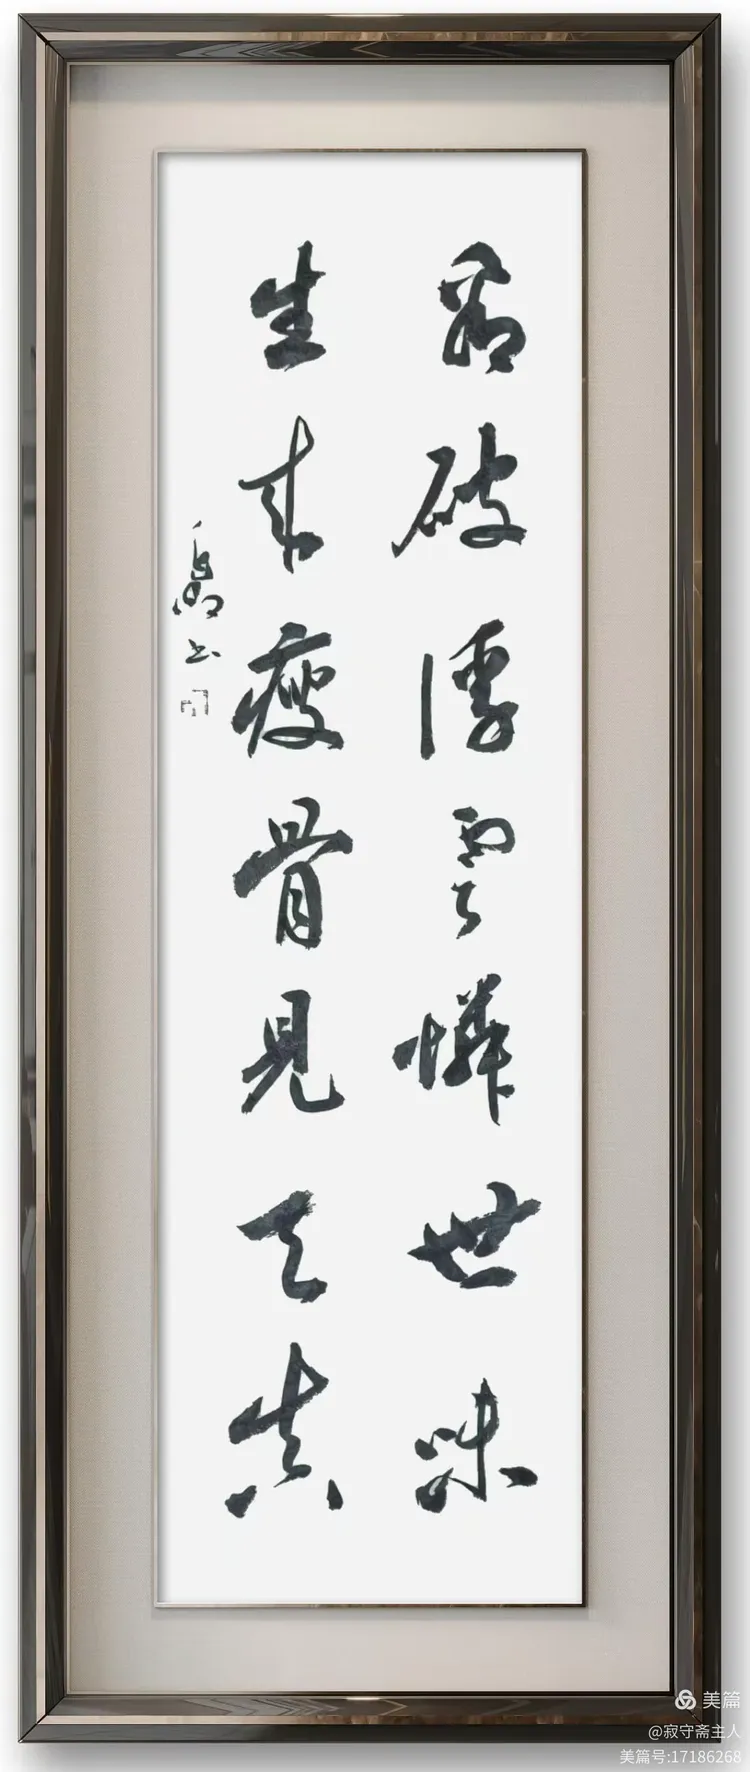 破浮雲憐世味
生来瘦骨見天真
书
美篇
@寂守斋主人
美篇号:17186268